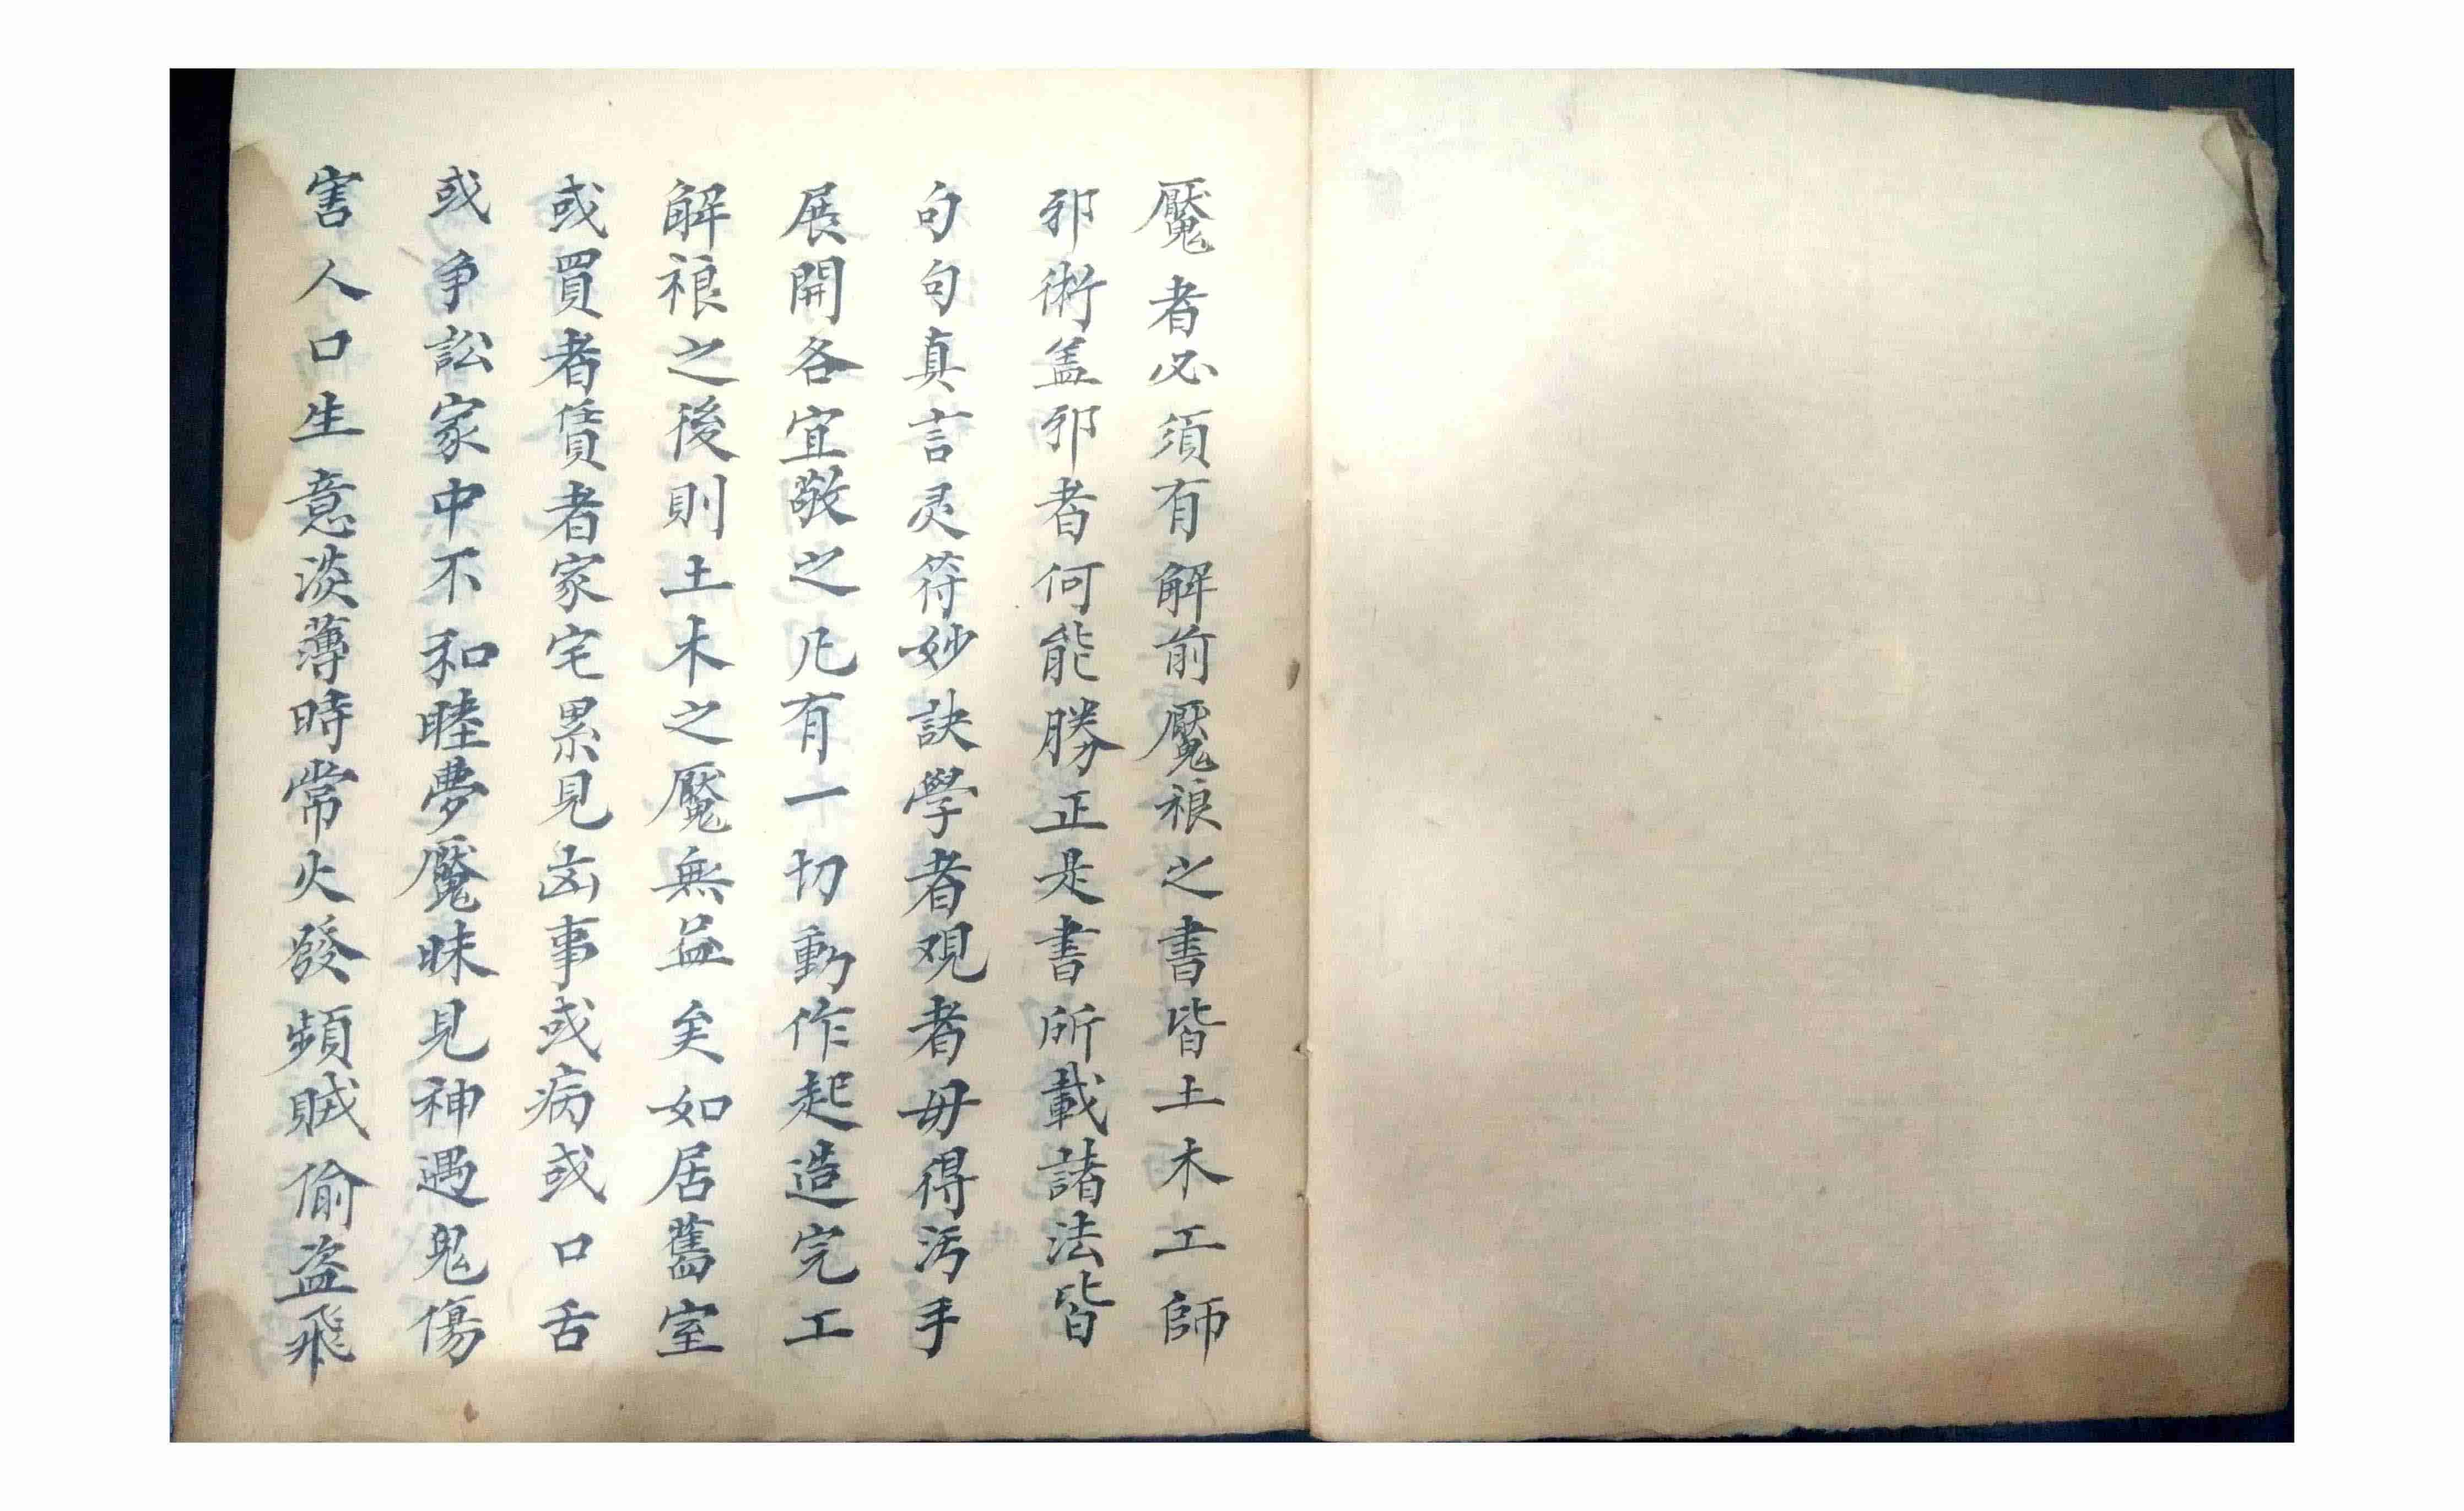 魘者必須有解前魘䘙之書皆土木工師
邪術盖邪者何能勝正是書所載諸法皆
句句真言灵符妙訣學者观者毋得污手
展開各宜敬之凡有一切動作起造完工
解䘙之後則土木之魘無益矣如居舊室
或買者賃者家宅累見凶事或病或口舌
或爭訟家中不和睦夢魘昧見神遇鬼傷
害人口生意淡薄時常火發頻賊偷盗飛